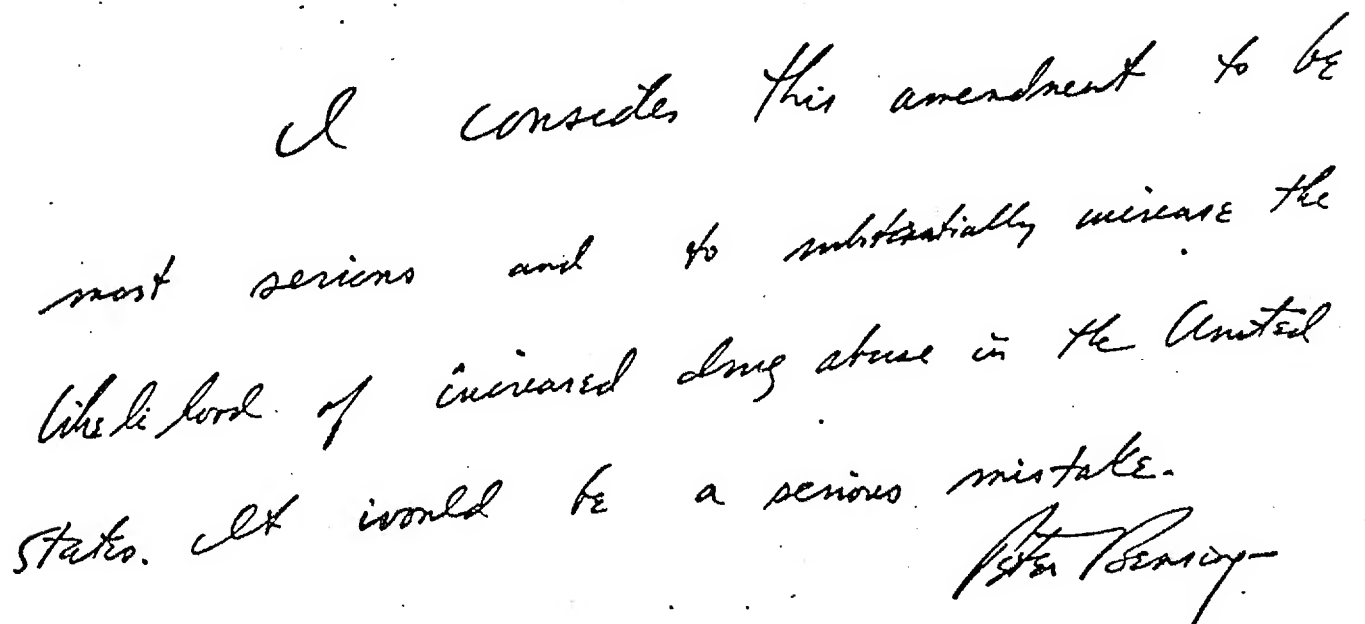 I consider this amendment to be
most serious and to substantially increase the
likelihood of increased drug abuse in the United
States. It would be a serious mistake.
Peter Bensinger